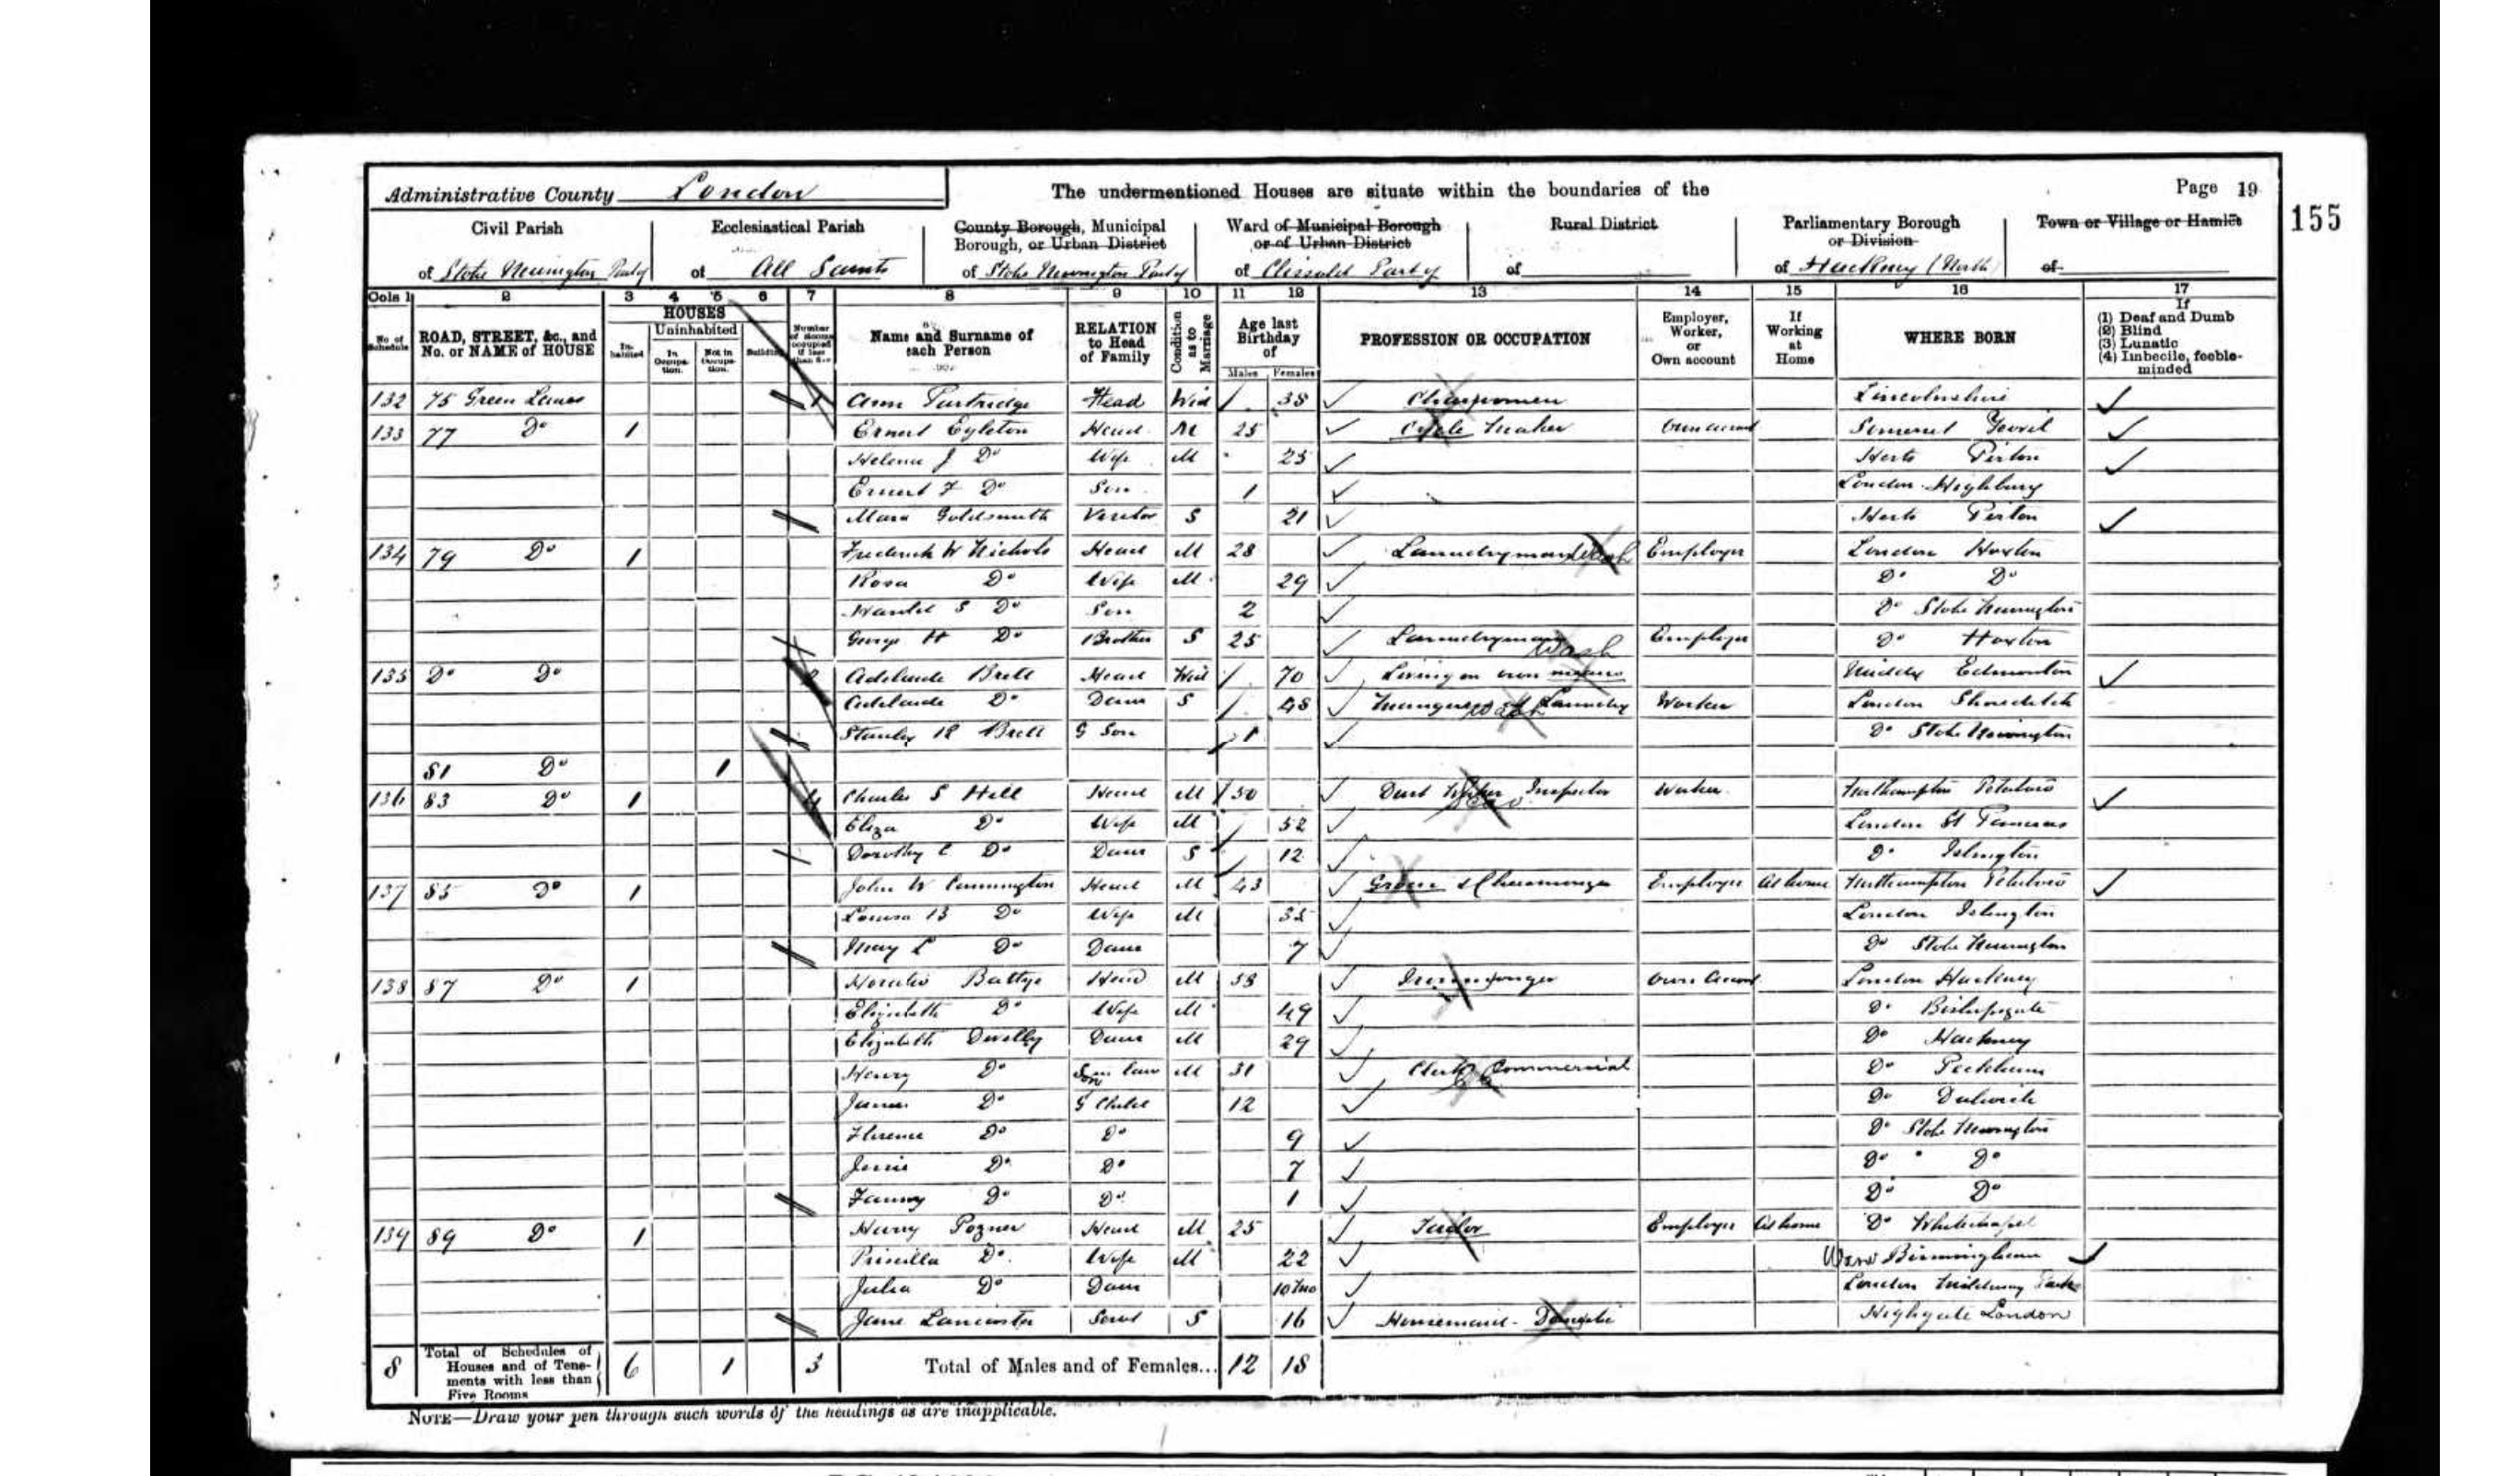 Administrative County London
The undermentioned Houses are situate within the boundaries of the
Page 19
155
Civil Parish
of Stoke Newington Part of
Ecclesiastical Parish
of All Saints
County Borough, Municipal
Borough, or Urban District
of Stoke Newington Part of
Ward of Municipal Borough
or of Urban District
of Clissold Part of
Rural District
of
Parliamentary Borough
or Division
of Hackney (North)
Town or Village or Hamlet
of
Cols 1 2 3 4 5 6 7 8 9 10 11 12 13 14 15 16 17
No. of Schedule
ROAD, STREET, &c., and
No. or NAME of HOUSE
HOUSES
Inhabited
Uninhabited
In Occupation.
Not in Occupation.
Building
Number of Rooms occupied if less than five
Name and Surname of
each Person
RELATION
to Head
of Family
Condition as to Marriage
Age last
Birthday
of
Males Females
PROFESSION OR OCCUPATION
Employer,
Worker,
or
Own account
If
Working
at
Home
WHERE BORN
If
(1) Deaf and Dumb
(2) Blind
(3) Lunatic
(4) Imbecile, feeble-
minded
132 75 Green Lanes 1 Ann Partridge Head Wid 38 Charwoman Lincolnshire
133 77 Do 1 Ernest Egleton Head M 25 Cycle Maker Own account Somerset Yeovil
Helena J Do Wife M 25 Herts Pirton
Ernest F Do Son 1 London Highbury
Mara Goldsmith Visitor S 21 Herts Pirton
134 79 Do 1 Frederick W Nichols Head M 28 Laundryman Wash Employer London Hoxton
Rosa Do Wife M 29 Do Do
Harold S Do Son 2 Do Stoke Newington
George H Do Brother S 25 Laundryman Wash Employer Do Hoxton
135 Do Do Adelaide Brett Head Wid 70 Living on own means Middx Edmonton
Adelaide Do Daur S 48 Manageress of Laundry Wash Worker London Shoreditch
Stanley R Brett G Son 1 Do Stoke Newington
81 Do 1
136 83 Do 1 4 Charles S Hill Head M 50 Dust Inspector Worker Northampton Peterboro
Eliza Do Wife M 52 London St Pancras
Dorothy E Do Daur S 12 Do Islington
137 85 Do 1 John W Cunnington Head M 43 Grocer & Cheesemonger Employer At home Northampton Peterboro
Louisa B Do Wife M 35 London Islington
May L Do Daur 7 Do Stoke Newington
138 87 Do 1 Horatio Battye Head M 53 Ironmonger Own Account London Hackney
Elizabeth Do Wife M 49 Do Bishopsgate
Elizabeth Dwelly Daur M 29 Do Hackney
Henry Do Son law M 31 Clerk Commercial Do Peckham
James Do G Child 12 Do Dulwich
Florence Do Do 9 Do Stoke Newington
Jessie Do Do 7 Do Do
Fanny Do Do 1 Do Do
139 89 Do 1 Harry Pozner Head M 25 Tailor Employer At home Do Whitechapel
Priscilla Do Wife M 22 Warw Birmingham
Julia Do Daur 10 mo London Mildmay Park
Jane Lancaster Servt S 16 Housemaid - Domestic Highgate London
8 Total of Schedules of
Houses and of Tene-
ments with less than
Five Rooms
6 1 3 Total of Males and of Females... 12 18
NOTE—Draw your pen through such words of the headings as are inapplicable.